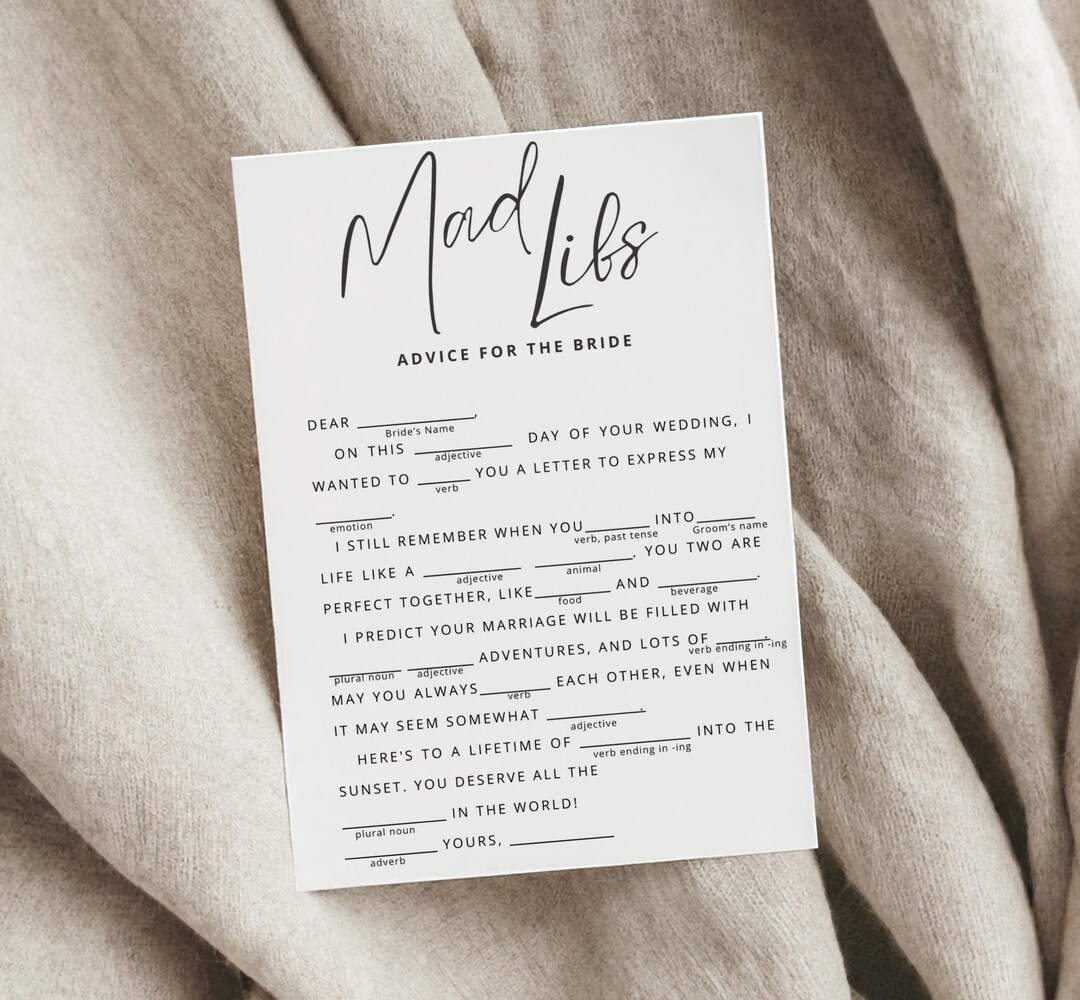 Mad Libs
ADVICE FOR THE BRIDE
DEAR ____________,
Bride's Name
ON THIS __________ DAY OF YOUR WEDDING, I
adjective
WANTED TO ______ YOU A LETTER TO EXPRESS MY
verb
________.
emotion
I STILL REMEMBER WHEN YOU_______ INTO______
verb, past tense Groom's name
LIFE LIKE A __________ __________. YOU TWO ARE
adjective animal
PERFECT TOGETHER, LIKE________ AND __________.
food beverage
I PREDICT YOUR MARRIAGE WILL BE FILLED WITH
________ _______ ADVENTURES, AND LOTS OF ______.
plural noun adjective verb ending in -ing
MAY YOU ALWAYS_______ EACH OTHER, EVEN WHEN
verb
IT MAY SEEM SOMEWHAT __________.
adjective
HERE'S TO A LIFETIME OF ___________ INTO THE
verb ending in -ing
SUNSET. YOU DESERVE ALL THE
___________ IN THE WORLD!
plural noun
__________ YOURS, ___________
adverb